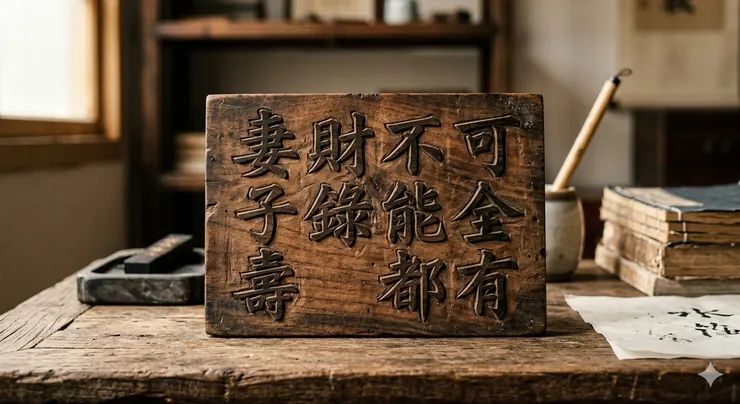 妻財不可
子錄能全
壽都有